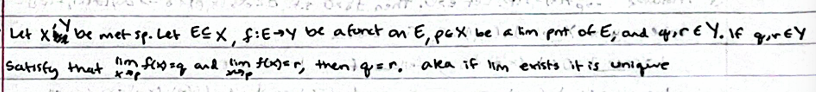 Let X,Y be met sp. Let E⊆X, f:E→Y be a funct on E, p∈X be a lim pnt of E, and q,r∈Y. If q,r∈Y
satisfy that lim x→p f(x)=q and lim x→p f(x)=r, then q=r. aka if lim exists it is unique